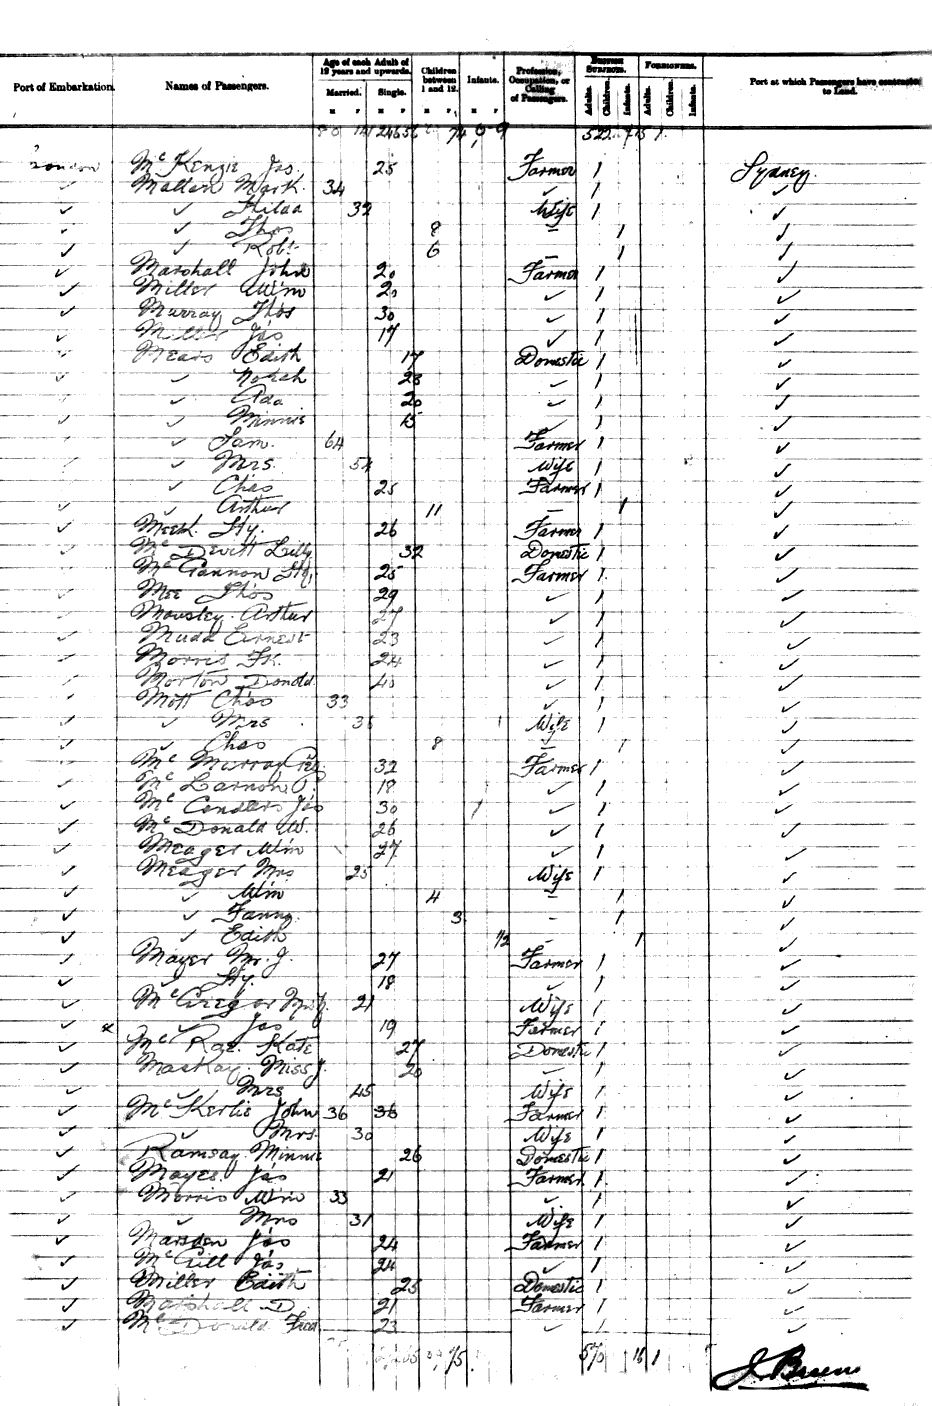 Port of Embarkation. Names of Passengers. Age of each Adult of 12 years and upwards. Children between 1 and 12. Infants. Profession, Occupation, or Calling of Passengers. British Subjects. Foreigners. Port at which Passengers have contracted to Land.
Married. Single. Adults. Children. Infants. Adults. Children. Infants.
M F M F M F M F
522
London McKenzie Jas. 25 Farmer 1 Sydney.
✓ Mallen Mark. 34 ✓ 1 ✓
✓ ✓ 32 Wife 1 ✓
✓ ✓ Thos 8 – 1 ✓
✓ ✓ Robt 6 – 1 ✓
✓ Marshall John 20 Farmer 1 ✓
✓ Miller Wm 20 ✓ 1 ✓
✓ Murray Thos 30 ✓ 1 ✓
✓ Miller Jas 17 ✓ 1 ✓
✓ Mears Edith 17 Domestic 1 ✓
✓ ✓ Norah 23 ✓ 1 ✓
✓ ✓ Ada 20 ✓ 1 ✓
✓ ✓ Minnie 15 ✓ 1 ✓
✓ ✓ Sam. 64 Farmer 1 ✓
✓ ✓ Mrs. 54 Wife 1 ✓
✓ ✓ Chas 25 Farmer 1 ✓
✓ ✓ Arthur 11 – 1 ✓
✓ Hy. 26 Farmer 1 ✓
✓ McDevitt Lilly 32 Domestic 1 ✓
✓ McGannon Hy, 25 Farmer 1 ✓
✓ Mee Thos 29 ✓ 1 ✓
✓ Mousley. Arthur 27 ✓ 1 ✓
✓ Mudd Ernest 23 ✓ 1 ✓
✓ Morris Fk. 24 ✓ 1 ✓
✓ Morton Donald. 40 ✓ 1 ✓
✓ Mott Chas 33 ✓ 1 ✓
✓ ✓ Mrs Wife 1 ✓
✓ ✓ Chas 8 – 1 ✓
✓ McMurray 32 Farmer 1 ✓
✓ McLarnon P. 18 ✓ 1 ✓
✓ Jas 30 ✓ 1 ✓
✓ McDonald W. 26 ✓ 1 ✓
✓ Meager Wm 27 ✓ 1 ✓
✓ Meager Mrs 25 Wife 1 ✓
✓ ✓ Wm 4 – 1 ✓
✓ ✓ Fanny. 3 – 1 ✓
✓ ✓ Edith 1/2 – 1 ✓
✓ Mayer Mr. J. 27 Farmer 1 ✓
✓ ✓ Hy. 18 ✓ 1 ✓
✓ McGregor 21 Wife 1 ✓
✓ x ✓ Jas 19 Farmer 1 ✓
✓ McRae. Kate 27 Domestic 1 ✓
✓ Mackay. Miss J. 20 – 1 ✓
✓ ✓ Mrs 45 Wife 1 ✓
✓ McKerlie John 36 36 Farmer 1 ✓
✓ ✓ Mrs. 30 Wife 1 ✓
✓ Ramsay Minnie 26 Domestic 1 ✓
✓ Mayes. Jas 21 Farmer. 1 ✓
✓ Morris Wm 33 ✓ 1 ✓
✓ ✓ Mrs 31 Wife 1 ✓
✓ Marsden Jas 24 Farmer 1 ✓
✓ McGill Jas 24 ✓ 1 ✓
✓ Miller Edith 25 Domestic 1 ✓
✓ Marshall D. 21 Farmer 1 ✓
✓ McDonald Fred 23 ✓ 1 ✓
570 16 1